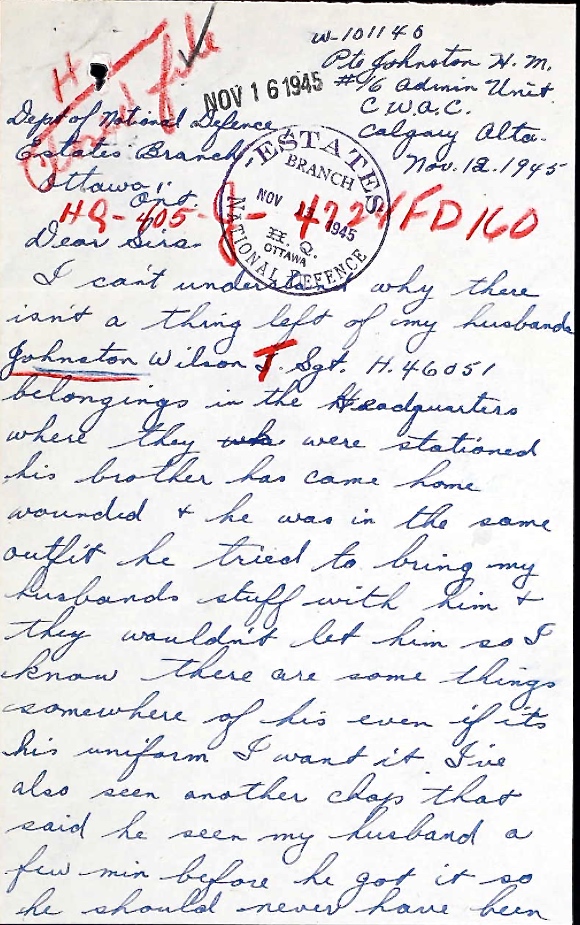 W-101140
Pte Johnston H. M.
#16 Admin Unit.
C.W.A.C.
Calgary Alta.
Nov. 12. 1945
H
Closed file
NOV 16 1945
Dept of National Defence
Estates Branch,
Ottawa,
Ont.
ESTATES
BRANCH
NOV 1 1945
H. Q.
OTTAWA
NATIONAL DEFENCE
HQ-405-J-4724 FD 160
Dear Sirs.
I can't understand why there
isn't a thing left of my husbands
Johnston Wilson T. Sgt. H.46051
belongings in the Headquarters
where they were stationed
his brother has came home
wounded + he was in the same
outfit he tried to bring my
husbands stuff with him +
they wouldn't let him so I
know there are some things
somewhere of his even if its
his uniform I want it. I've
also seen another chap that
said he seen my husband a
few min before he got it so
he should never have been